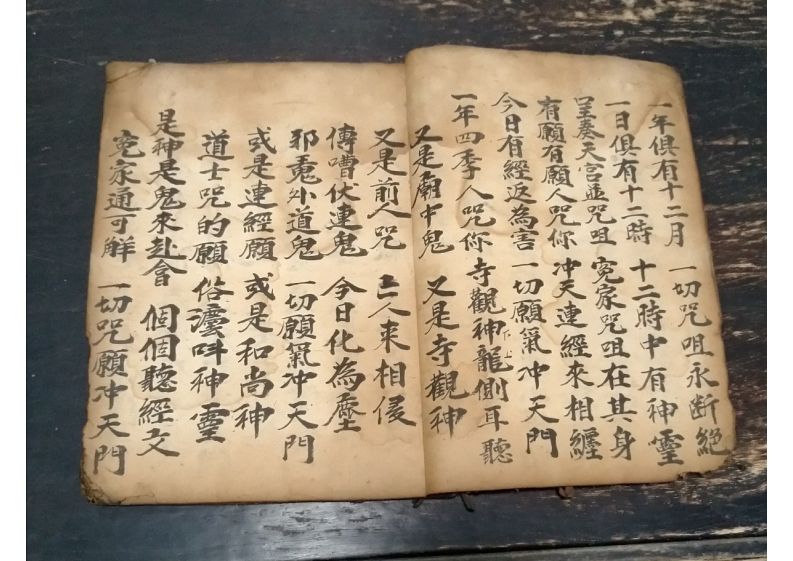 一年俱有十二月 一切咒咀永断絕
一日俱有十二時 十二時中有神靈
呈奏天宫並咒咀 冤家咒咀在其身
有願有願人咒你 冲天連經來相纏
今日有經返為害 一切願氣冲天門
一年四季人咒你 寺觀神龍側耳聽
又是廟中鬼 又是寺觀神
又是前人咒 亡人来相侵
傳嘈伏連鬼 今日化為塵
邪鬼外道鬼 一切願氣冲天門
或是連經願 或是和尚神
道士咒的願 俗灋叫神靈
是神是鬼來赴會 個個聽經文
冤家通可解 一切咒願冲天門